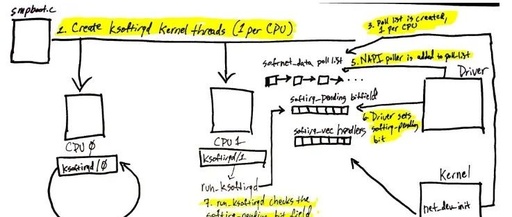 smpboot.c
1. Create ksoftirqd kernel threads (1 per CPU)
3. Poll list is created,
1 per CPU
softnet_data poll list
5. NAPI poller is added to poll list
Driver
softirq_pending bitfield
6. Driver sets
softirq_pending
bit
softirq_vec handlers
CPU 0
ksoftirqd/0
CPU 1
ksoftirqd/1
run_ksoftirqd
7. run_ksoftirqd checks the
softirq_pending bit field
Kernel
net_dev_init